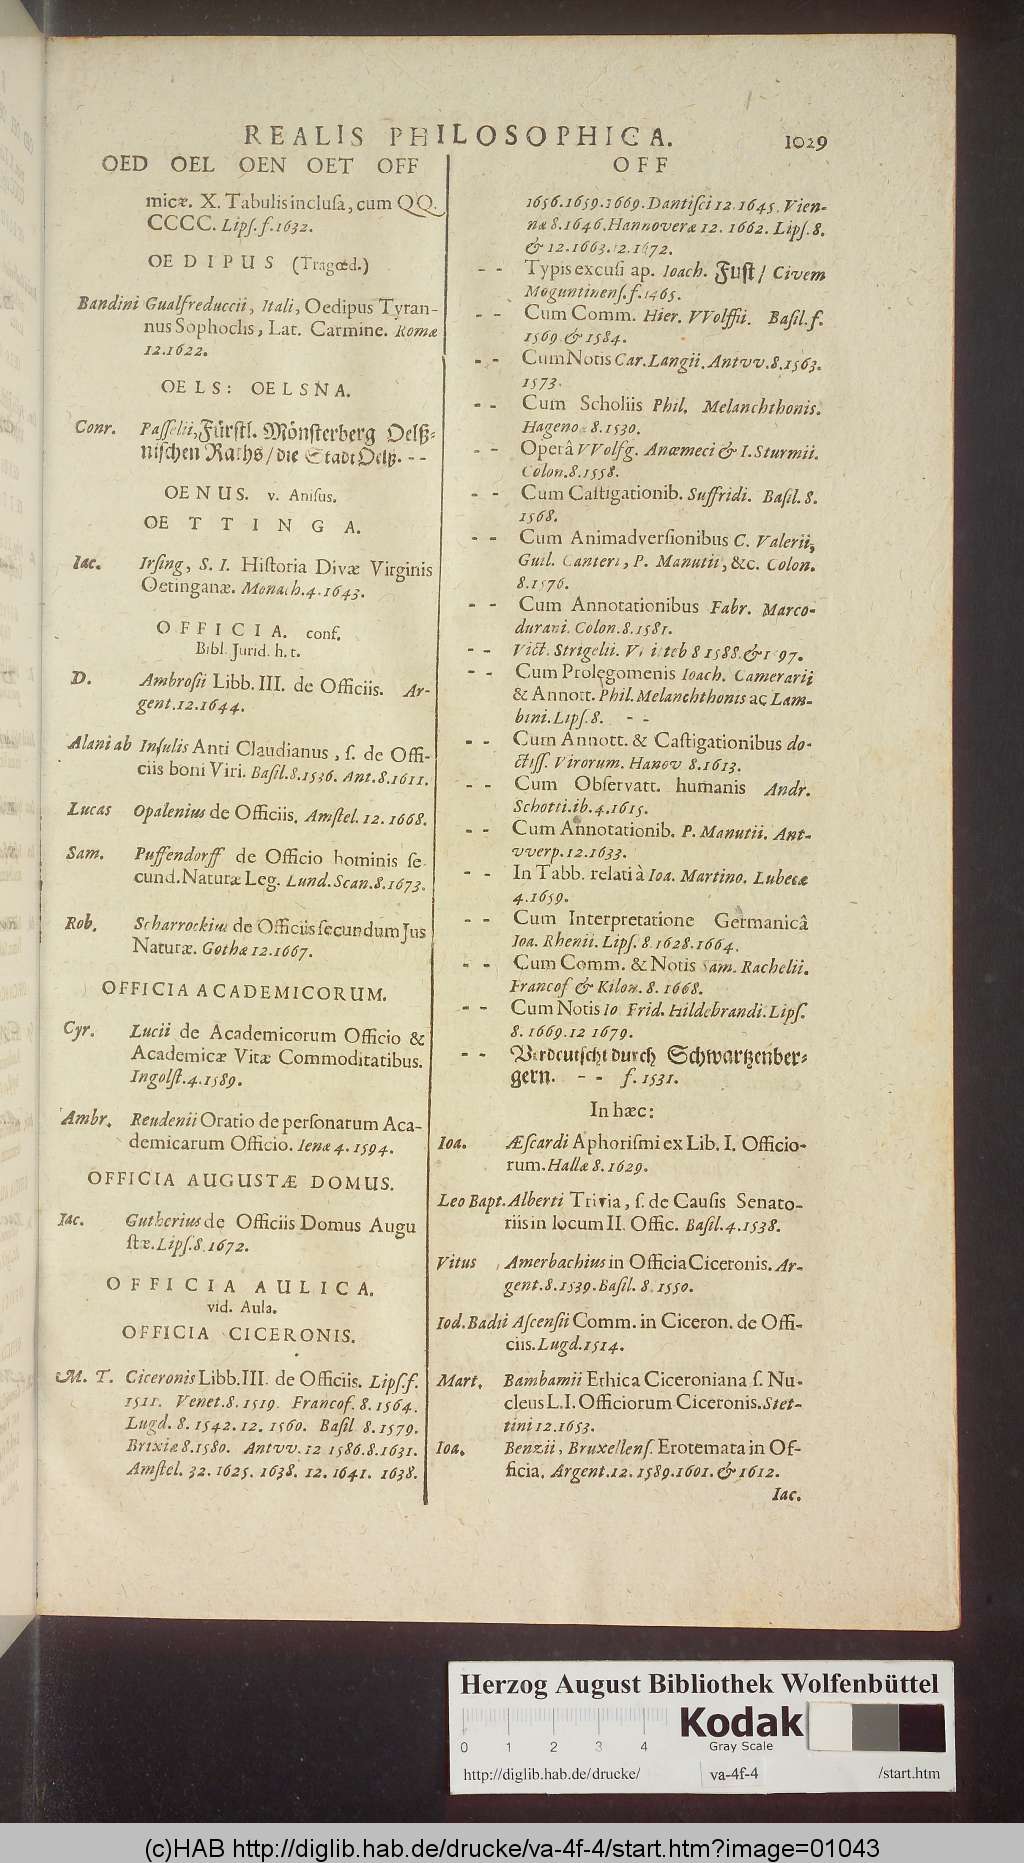 REALIS PHILOSOPHICA. 1029
OED OEL OEN OET OFF
micæ. X. Tabulis inclusa, cum QQ.
CCCC. Lipſ. f. 1632.
OEDIPUS (Tragœd.)
Bandini Gualfreduccii, Itali, Oedipus Tyran-
nus Sophoclis, Lat. Carmine. Romæ
12. 1622.
OELS: OELSNA.
Conr. Paſſelii, Fürſtl. Mönſterberg Oelß-
niſchen Raths / die Stadt Oelß. - -
OENUS. v. Aniſus.
OETTINGA.
Iac. Irſing, S. I. Hiſtoria Divæ Virginis
Oetinganæ. Monach. 4. 1643.
OFFICIA. conf.
Bibl. Jurid. h. t.
D. Ambroſii Libb. III. de Officiis. Ar-
gent. 12. 1644.
Alani ab Inſulis Anti Claudianus, ſ. de Offi-
ciis boni Viri. Baſil. 8. 1536. Ant. 8. 1611.
Lucas Opalenius de Officiis. Amſtel. 12. 1668.
Sam. Puffendorff de Officio hominis ſe
cund. Naturæ Leg. Lund. Scan. 8. 1673.
Rob. Scharrockius de Officiis ſecundum Jus
Naturæ. Gothæ 12. 1667.
OFFICIA ACADEMICORUM.
Cyr. Lucii de Academicorum Officio &
Academicæ Vitæ Commoditatibus.
Ingolſt. 4. 1589.
Ambr. Reudenii Oratio de perſonarum Aca-
demicarum Officio. Ienæ 4. 1594.
OFFICIA AUGUSTÆ DOMUS.
Iac. Gutherius de Officiis Domus Augu
ſtæ. Lipſ. 8. 1672.
OFFICIA AULICA.
vid. Aula.
OFFICIA CICERONIS.
M. T. Ciceronis Libb. III. de Officiis. Lipſ. f.
1511. Venet. 8. 1519. Francof. 8. 1564.
Lugd. 8. 1542. 12. 1560. Baſil 8. 1579.
Brixiæ 8. 1580. Antvv. 12 1586. 8. 1631.
Amſtel. 32. 1625. 1638. 12. 1641. 1638.
OFF
1656. 1659. 1669. Dantiſci 12. 1645. Vien-
næ 8. 1646. Hannoveræ 12. 1662. Lipſ. 8.
& 12. 1663. 12. 1672.
- - Typis excuſi ap. Ioach. Fuſt / Civem
Moguntinenſ. f. 1465.
- - Cum Comm. Hier. VVolffii. Baſil. f.
1569 & 1584.
- - Cum Notis Car. Langii. Antvv. 8. 1563.
1573.
- - Cum Scholiis Phil. Melanchthonis.
Hageno 8. 1530.
- - Operâ VVolfg. Anœmeci & I. Sturmii.
Colon. 8. 1558.
- - Cum Caſtigationib. Suffridi. Baſil. 8.
1568.
- - Cum Animadverſionibus C. Valerii,
Guil. Canteri, P. Manutii, &c. Colon.
8. 1576.
- - Cum Annotationibus Fabr. Marco-
durani. Colon. 8. 1581.
- - Vict. Strigelii. Witteb 8 1588. & 1597.
- - Cum Prolegomenis Ioach. Camerarii
& Annott. Phil. Melanchthonis ac Lam-
bini. Lipſ. 8. - -
- - Cum Annott. & Caſtigationibus do-
ctiſſ. Virorum. Hanov 8. 1613.
- - Cum Obſervatt. humanis Andr.
Schotti. ib. 4. 1615.
- - Cum Annotationib. P. Manutii. Ant-
vverp. 12. 1633.
- - In Tabb. relati à Ioa. Martino. Lubecæ
4. 1659.
- - Cum Interpretatione Germanicâ
Ioa. Rhenii. Lipſ. 8. 1628. 1664.
- - Cum Comm. & Notis Sam. Rachelii.
Francof & Kilon. 8. 1668.
- - Cum Notis Io Frid. Hildebrandi. Lipſ.
8. 1669. 12 1679.
- - Verdeutſcht durch Schwartzenber-
gern. - - f. 1531.
In hæc:
Ioa. Æſcardi Aphoriſmi ex Lib. I. Officio-
rum. Hallæ 8. 1629.
Leo Bapt. Alberti Trivia, ſ. de Cauſis Senato-
riis in locum II. Offic. Baſil. 4. 1538.
Vitus Amerbachius in Officia Ciceronis. Ar-
gent. 8. 1539. Baſil. 8. 1550.
Iod. Badii Aſcenſii Comm. in Ciceron. de Offi-
ciis. Lugd. 1514.
Mart. Bambamii Ethica Ciceroniana ſ. Nu-
cleus L. I. Officiorum Ciceronis. Stet-
tini 12. 1653.
Ioa. Benzii, Bruxellenſ. Erotemata in Of-
ficia. Argent. 12. 1589. 1601. & 1612.
Iac.
Herzog August Bibliothek Wolfenbüttel
Kodak
Gray Scale
0 1 2 3 4
http://diglib.hab.de/drucke/ va-4f-4 /start.htm
(c)HAB http://diglib.hab.de/drucke/va-4f-4/start.htm?image=01043